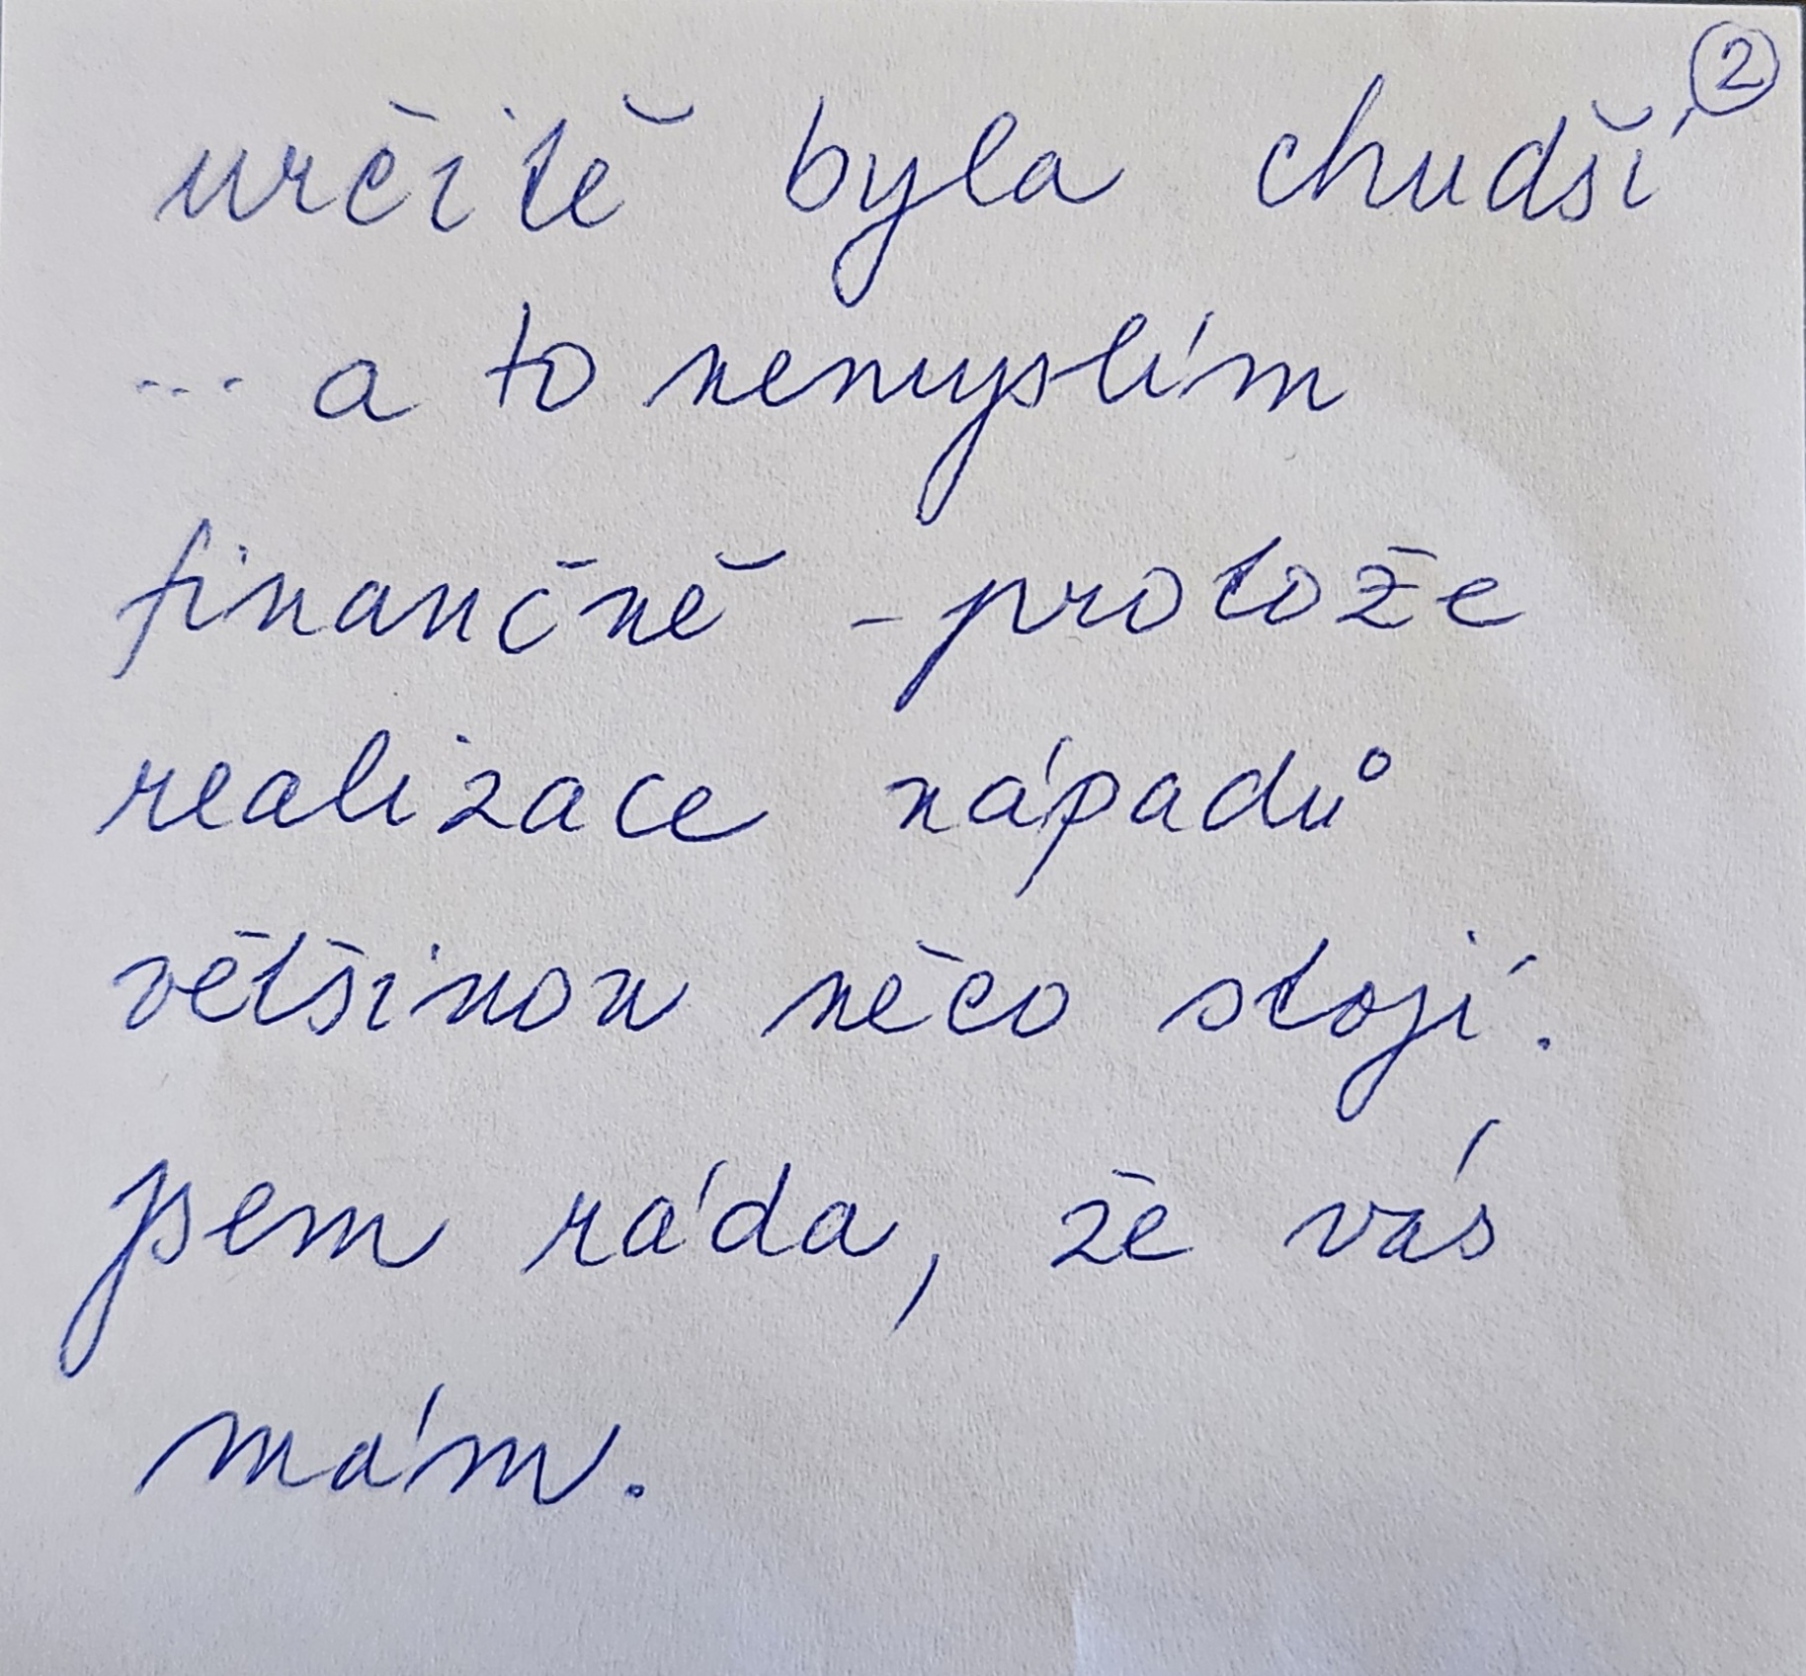 2
určitě byla chudší
... a to nemyslím
finančně - protože
realizace nápadů
většinou něco stojí.
Jsem ráda, že vás
mám.